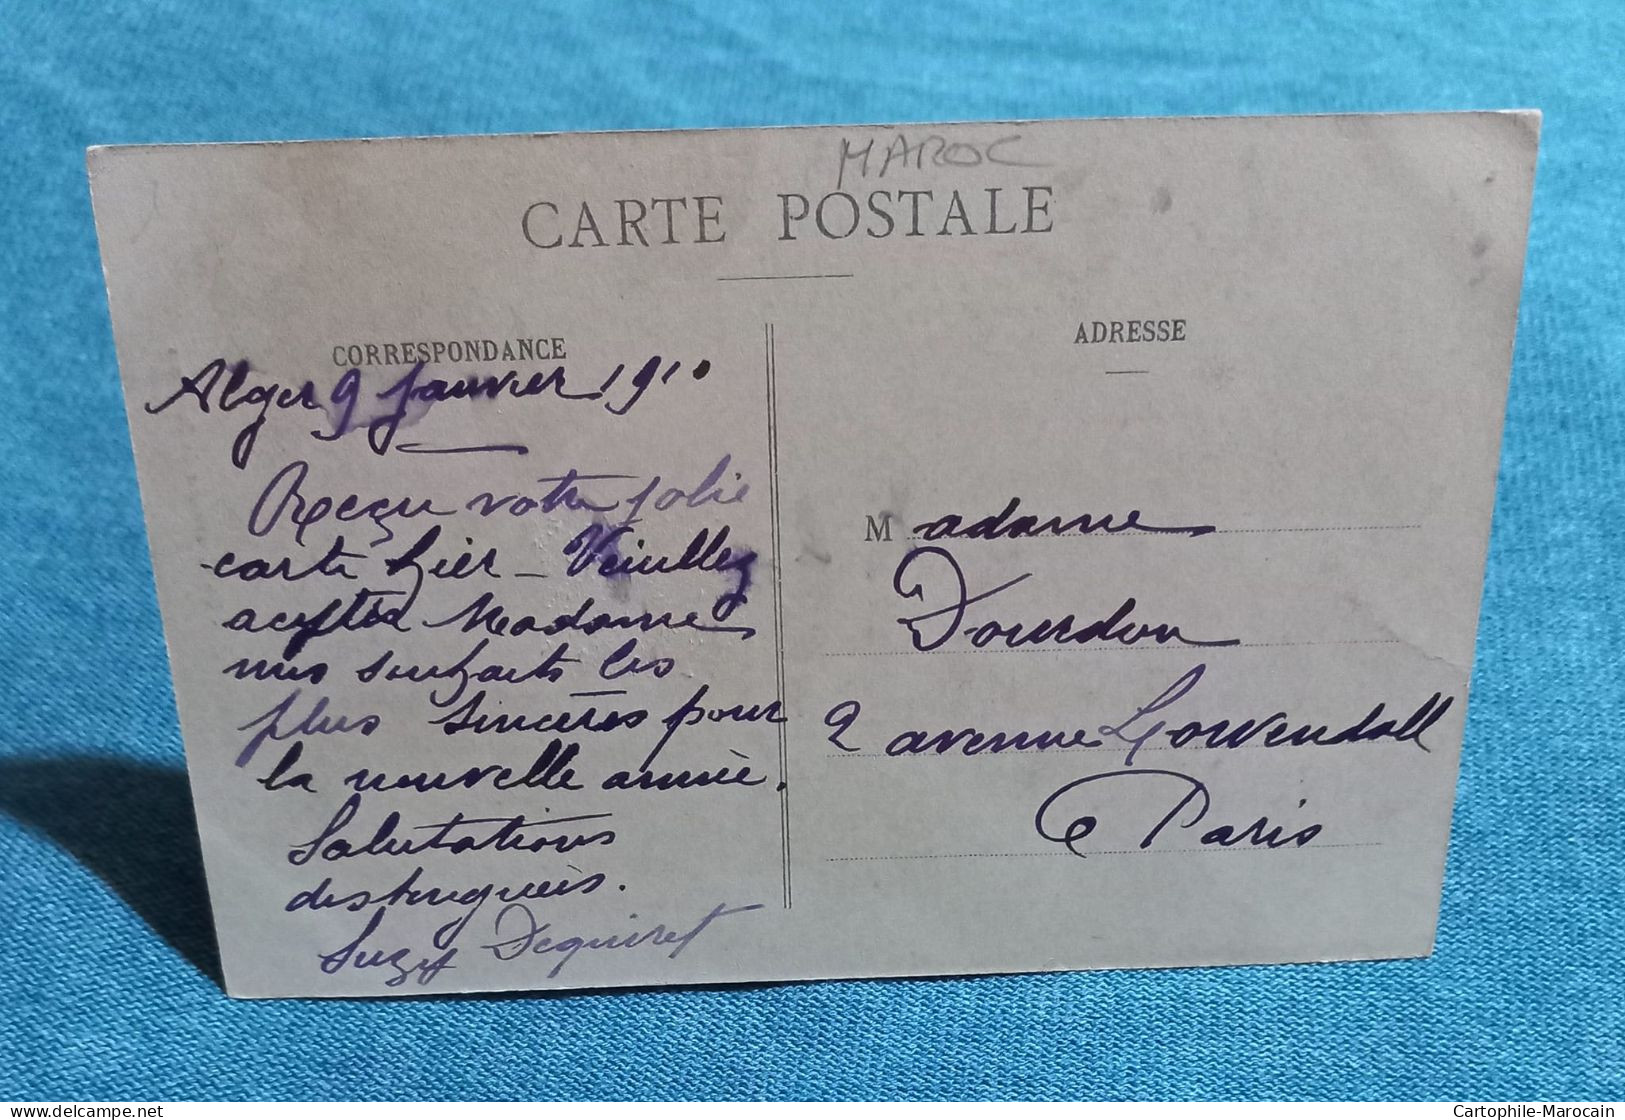 MAROC
CARTE POSTALE
CORRESPONDANCE
Alger 9 Janvier 1910
Reçu votre jolie
carte hier - Veuillez
accepter Madame
mes souhaits les
plus sincères pour
la nouvelle année.
Salutations
distinguées.
Suzy
ADRESSE
Madame
Dourdon
2 avenue Lowendall
Paris
delcampe.net
Cartophile-Marocain